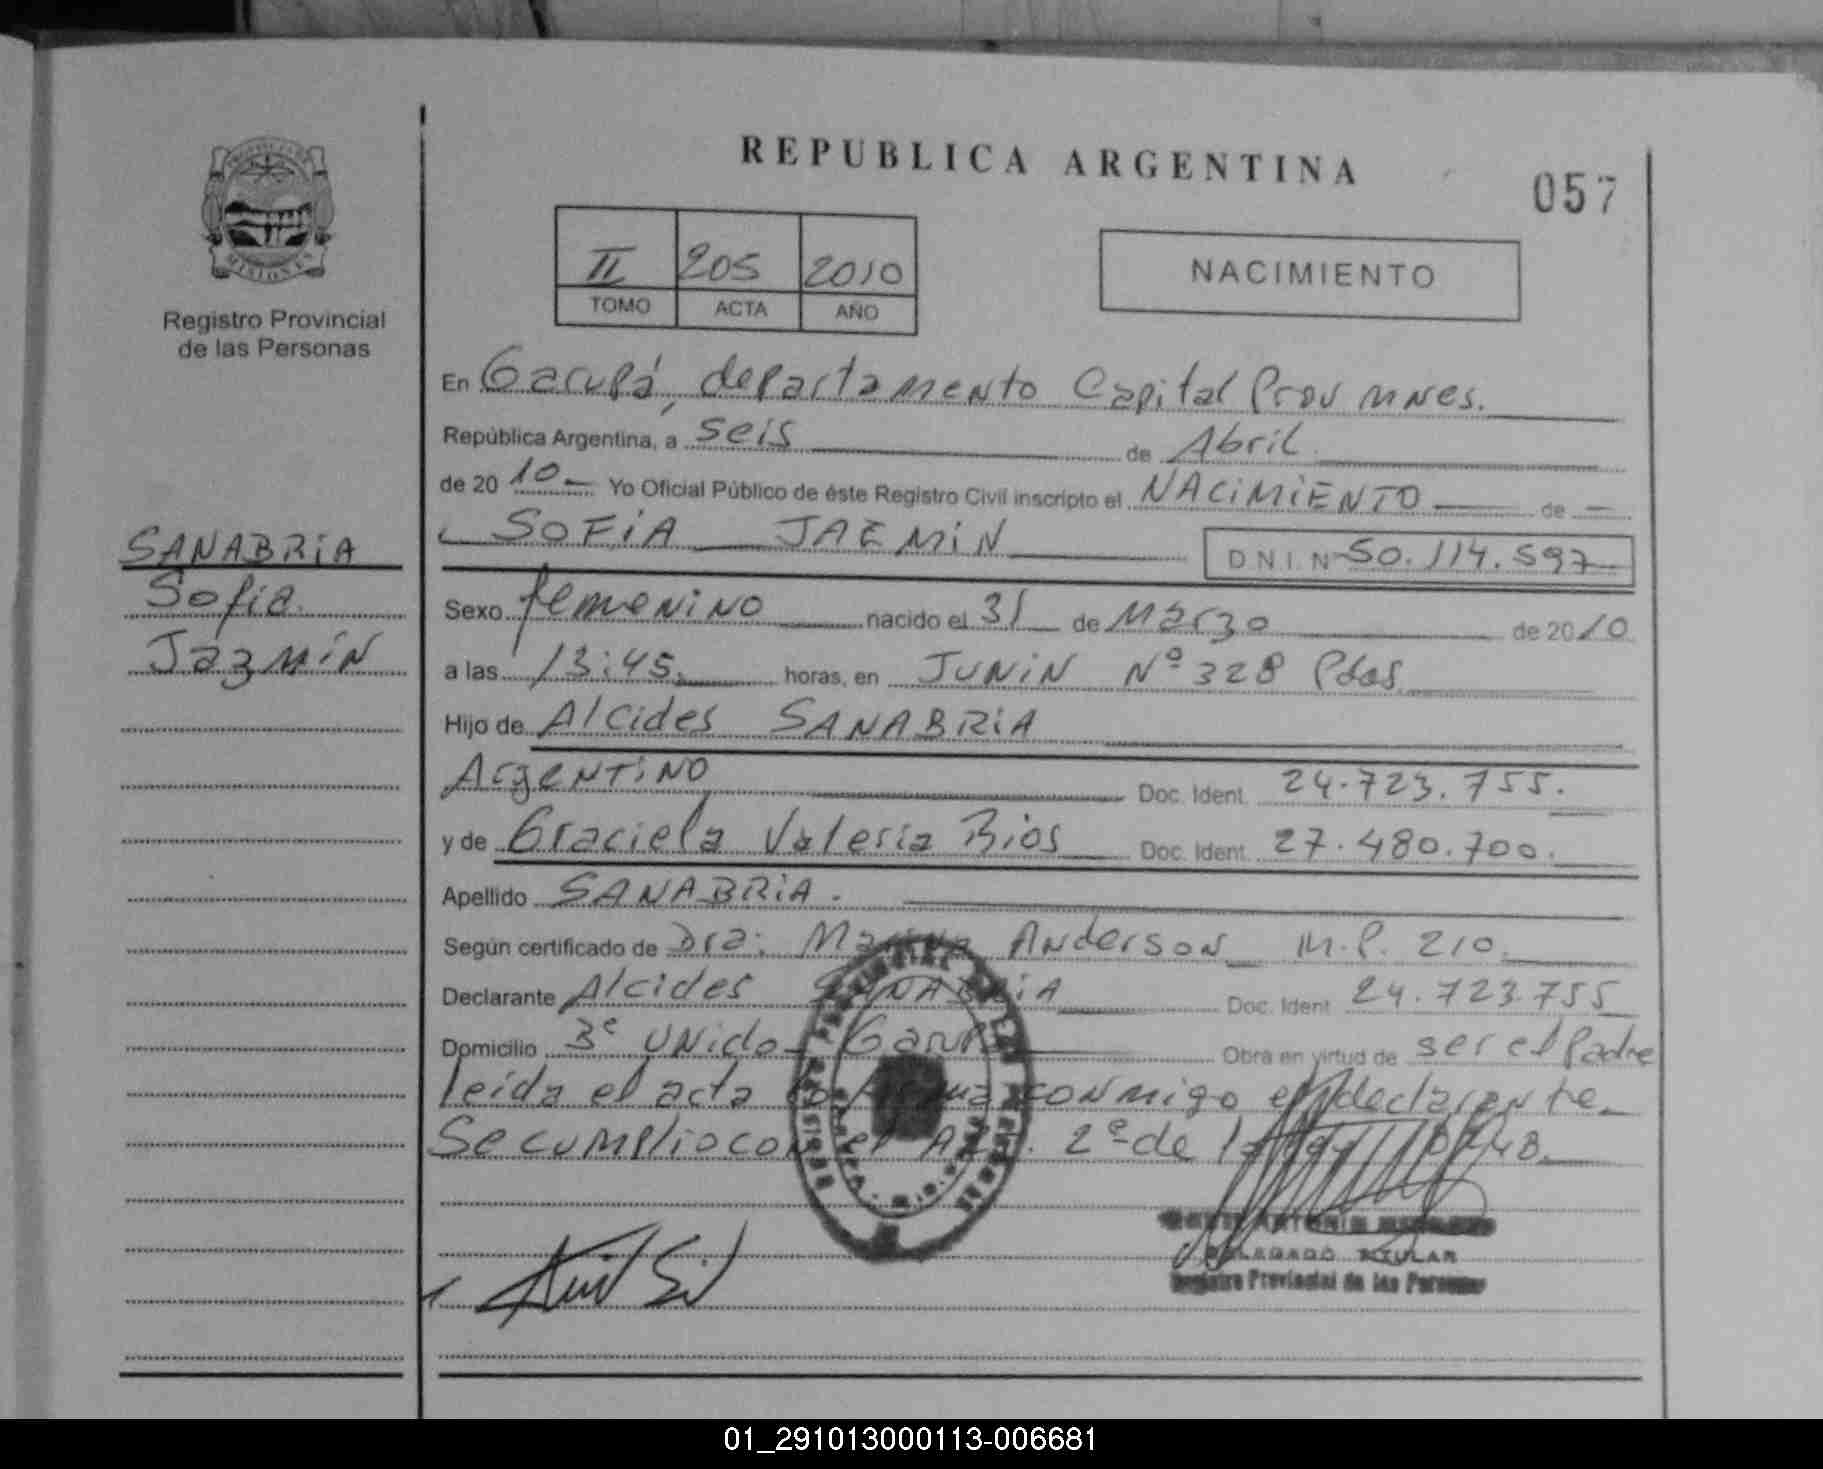 REPUBLICA ARGENTINA
057
PROVINCIA DE
MISIONES
Registro Provincial
de las Personas
II 205 2010
TOMO ACTA AÑO
NACIMIENTO
En Garupá, departamento Capital Prov Mnes.
República Argentina, a seis de Abril
de 20 10 Yo Oficial Público de éste Registro Civil inscripto el NACIMIENTO de
SOFIA JAZMIN D.N.I. Nº 50.114.597
SANABRIA
Sofia
Jazmín
Sexo femenino nacido el 31 de Marzo de 20 10
a las 13:45 horas, en JUNIN Nº 328 Pdas
Hijo de Alcides SANABRIA
Argentino Doc. Ident. 24.723.755.
y de Graciela Valeria Rios Doc. Ident. 27.480.700.
Apellido SANABRIA.
Según certificado de Dra: Marina Anderson M.P. 210.
Declarante Alcides SANABRIA Doc. Ident. 24.723.755
Domicilio 3º Unido - Garupá Obra en virtud de ser el Padre
leída el acta la firma conmigo el declarante
Se cumplio con el Art. 2º de
DELEGADO TITULAR
Registro Provincial de las Personas
01_291013000113-006681